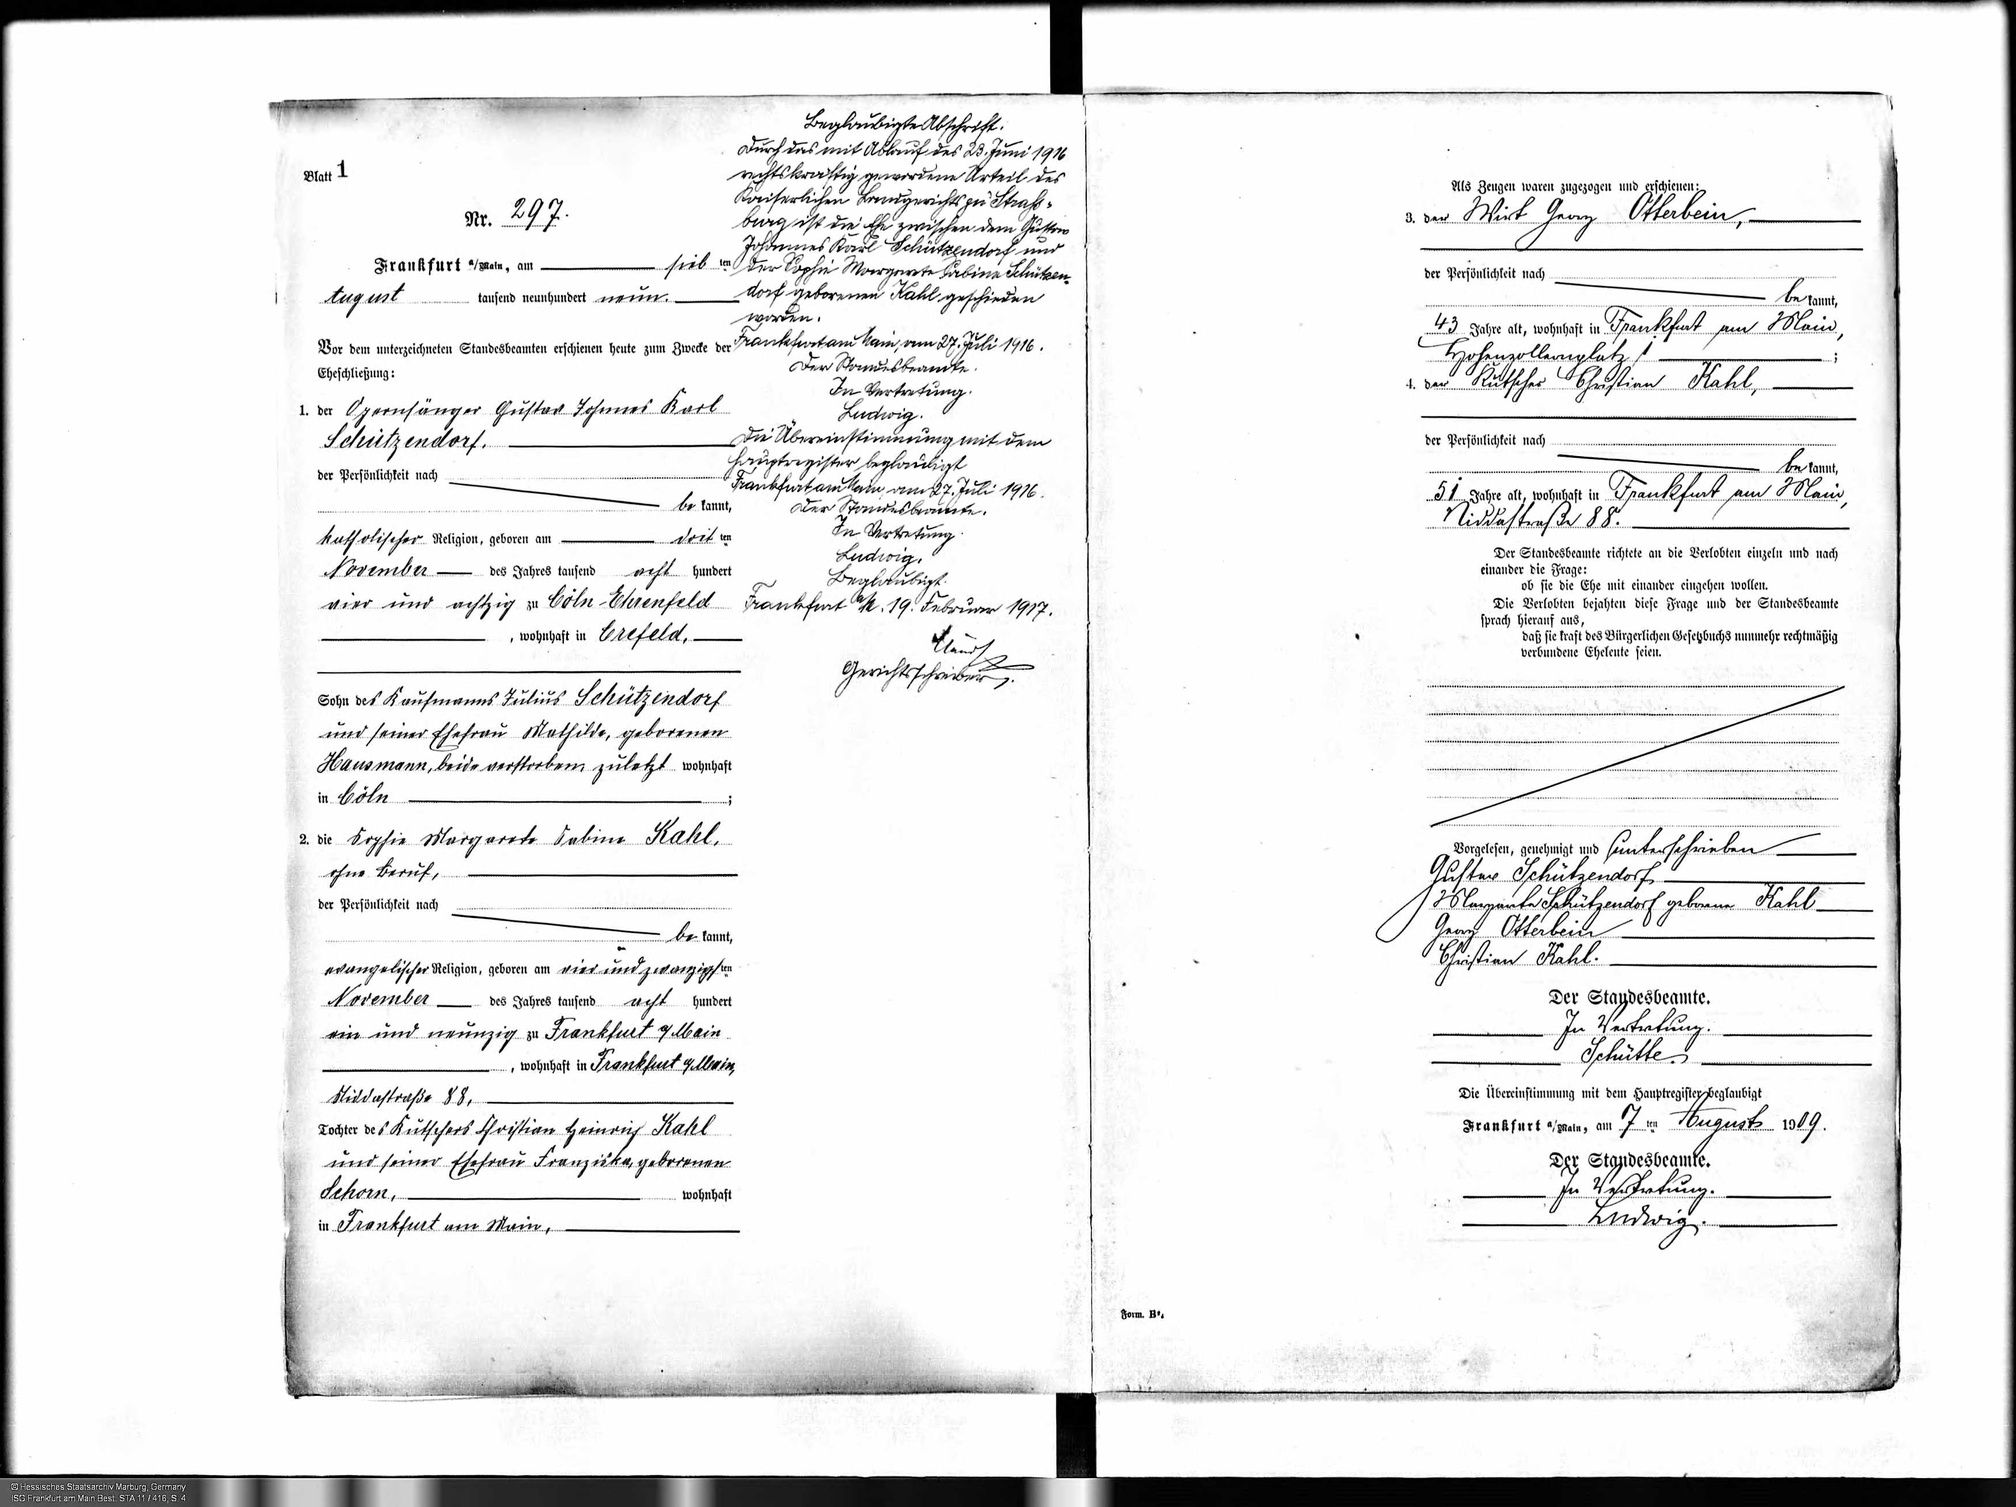 Blatt 1
Nr. 297.
Frankfurt a/Main, am sieb ten
August tausend neunhundert neun.
Vor dem unterzeichneten Standesbeamten erschienen heute zum Zwecke der
Eheschließung:
1. der Opernsänger Gustav Johannes Karl
Schützendorf.
der Persönlichkeit nach
be kannt,
katholischer Religion, geboren am dritten
November des Jahres tausend acht hundert
vier und achtzig zu Cöln-Ehrenfeld
, wohnhaft in Crefeld,
Sohn des Kaufmanns Julius Schützendorf
und seiner Ehefrau Mathilde, geborenen
Hausmann, beide verstorben, zuletzt wohnhaft
in Cöln ;
2. die Sophie Margarete Sabine Kahl,
ohne Beruf,
der Persönlichkeit nach
be kannt,
evangelischer Religion, geboren am vier und zwanzigsten
November des Jahres tausend acht hundert
ein und neunzig zu Frankfurt a/Main
, wohnhaft in Frankfurt a/Main,
Niddastraße 88,
Tochter des Kutschers Christian Heinrich Kahl
und seiner Ehefrau Franziska, geborenen
Schorn, wohnhaft
in Frankfurt am Main,
Beglaubigte Abschrift.
Durch das mit Ablauf des 23. Juni 1916
rechtskräftig gewordene Urteil des
Kaiserlichen Landgerichts zu Straß-
burg ist die Ehe zwischen dem Gustav
Johannes Karl Schützendorf und
der Sophie Margarete Sabine Schützen-
dorf geborenen Kahl geschieden
worden.
Frankfurt am Main, am 27. Juli 1916.
Der Standesbeamte.
In Vertretung.
Ludwig.
Die Übereinstimmung mit dem
Hauptregister beglaubigt
Frankfurt am Main, am 27. Juli 1916.
Der Standesbeamte.
In Vertretung.
Ludwig.
Beglaubigt.
Frankfurt a/M. 19. Februar 1917.
Gerichtsschreiber.
Als Zeugen waren zugezogen und erschienen:
3. der Wirt Georg Otterbein,
der Persönlichkeit nach
be kannt,
43 Jahre alt, wohnhaft in Frankfurt am Main,
Hohenzollernplatz 1 ;
4. der Kutscher Christian Kahl,
der Persönlichkeit nach
be kannt,
51 Jahre alt, wohnhaft in Frankfurt am Main,
Niddastraße 88.
Der Standesbeamte richtete an die Verlobten einzeln und nach
einander die Frage:
ob sie die Ehe mit einander eingehen wollen.
Die Verlobten bejahten diese Frage und der Standesbeamte
sprach hierauf aus,
daß sie kraft des Bürgerlichen Gesetzbuchs nunmehr rechtmäßig
verbundene Eheleute seien.
Vorgelesen, genehmigt und unterschrieben
Gustav Schützendorf
Margarete Schützendorf geborene Kahl
Georg Otterbein
Christian Kahl.
Der Standesbeamte.
In Vertretung.
Schütte.
Die Übereinstimmung mit dem Hauptregister beglaubigt
Frankfurt a/Main, am 7 ten August 1909.
Der Standesbeamte.
In Vertretung.
Ludwig.
Form. B
© Hessisches Staatsarchiv Marburg, Germany
ISG Frankfurt am Main Best. STA 11 / 416, S. 4